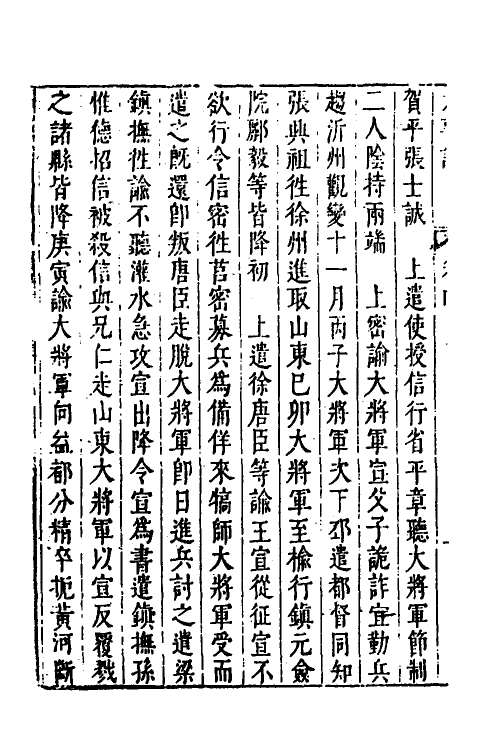 賀平張士誠　上遣使授信行省平章聽大將軍節制
二人陰持兩端　上密諭大將軍宣父子詭詐宜勤兵
趨沂州觀變十一月丙子大將軍次下邳遣都督同知
張興祖徃徐州進取山東己卯大將軍至榆行鎮元僉
院鄺毅等皆降初　上遣徐唐臣等諭王宣從征宣不
欲行令信密徃莒密募兵爲備佯來犒師大將軍受而
遣之旣還卽叛唐臣走脫大將軍卽日進兵討之遣梁
鎮撫徃諭不聽灌水急攻宣出降令宣爲書遣鎮撫孫
惟德招信被殺信與兄仁走山東大將軍以宣反覆戮
之諸縣皆降庚寅諭大將軍向益都分精卒扼黃河斷